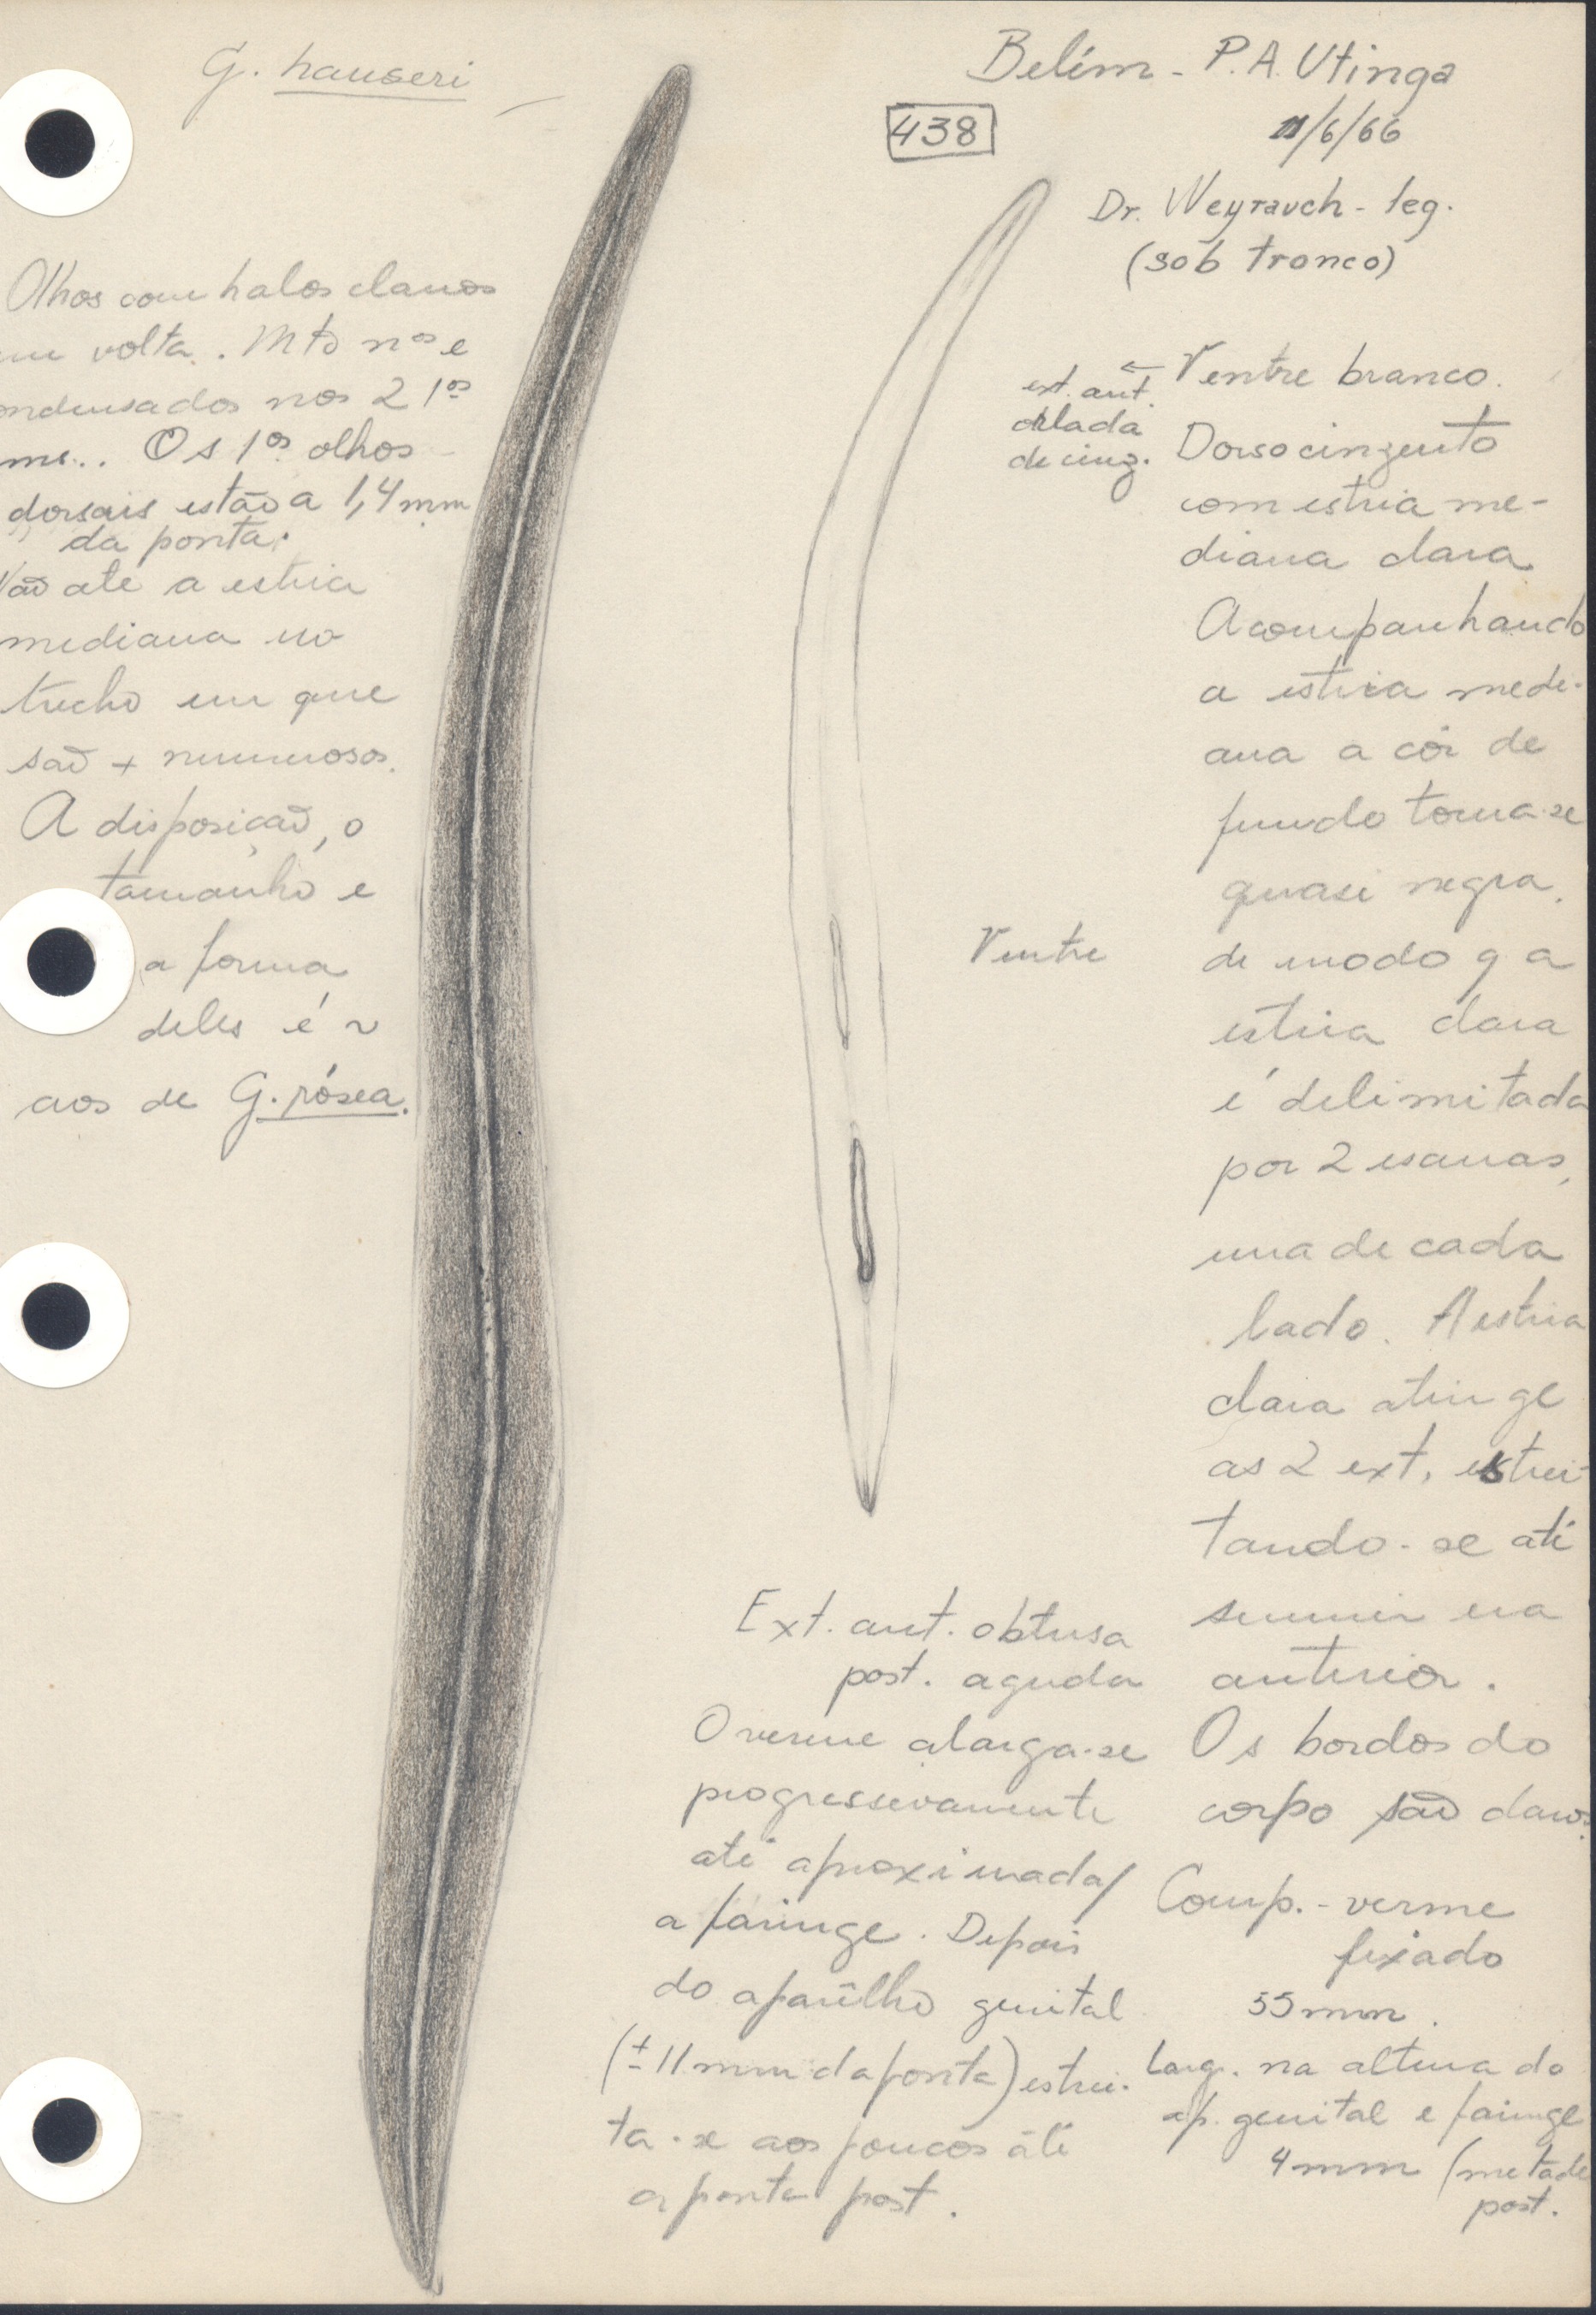 G. hauseri
Belém - P.A. Utinga
438
/6/66
Dr. Weyrauch - leg.
(sob tronco)
Olhos com halos claros
em volta. Mto nos e
ondensados nos 2 1os
mm.. Os 1os olhos
dorsais estão a 1,4 mm
da ponta.
Vão até a estria
mediana no
trecho em que
são + numerosos.
A disposição, o
tamanho e
a forma
deles é ~
aos de G. rósea.
← Ventre branco.
ext. ant.
orlada
de cinz.
Dorso cinzento
com estria me-
diana clara
Acompanhando
a estria medi-
ana a côr de
fundo torna-se
quasi negra.
de modo q a
estria clara
é delimitada
por 2 escuras,
uma de cada
lado. A estria
clara atinge
as 2 ext. estrei-
tando-se até
sumir na
anterior.
Os bordos do
corpo são claros.
Comp. - verme
fixado
55 mm.
Larg. na altura do
ap. genital e faringe
4 mm (metade
post.
Ventre
Ext. ant. obtusa
post. aguda
O verme alarga-se
progressivamente
até aproximada/
a faringe. Depois
do aparêlho genital
(± 11 mm da ponta) estrei-
ta-se aos poucos até
a ponta post.